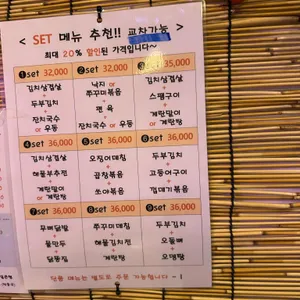 < SET 메뉴 추천!! 교차가능 >
최대 20% 할인된 가격입니다~
❶set 32,000
김치삼겹살
+
두부김치
+
잔치국수 or 우동
❷set 32,000
낙지 or
쭈꾸미볶음
+
편육
+
잔치국수 or 우동
35,000
김치삼겹살
+
스팸구이
+
계란말이
or 계란탕
❹set 36,000
김치삼겹살
+
해물부추전
+
계란말이
or
계란탕
❺set 36,000
오징어데침
+
골창볶음
+
쏘야볶음
set 36,000
두부김치
+
고등어구이
+
set 36,000
무뼈닭발
+
물만두
+
❽set 36,000
쭈꾸미데침
+
해물김치전
+
❾set 36,000
두부김치
+
오돌뼈
+
오뎅탕
단품 메뉴는 별도로 주문 가능합니다~!